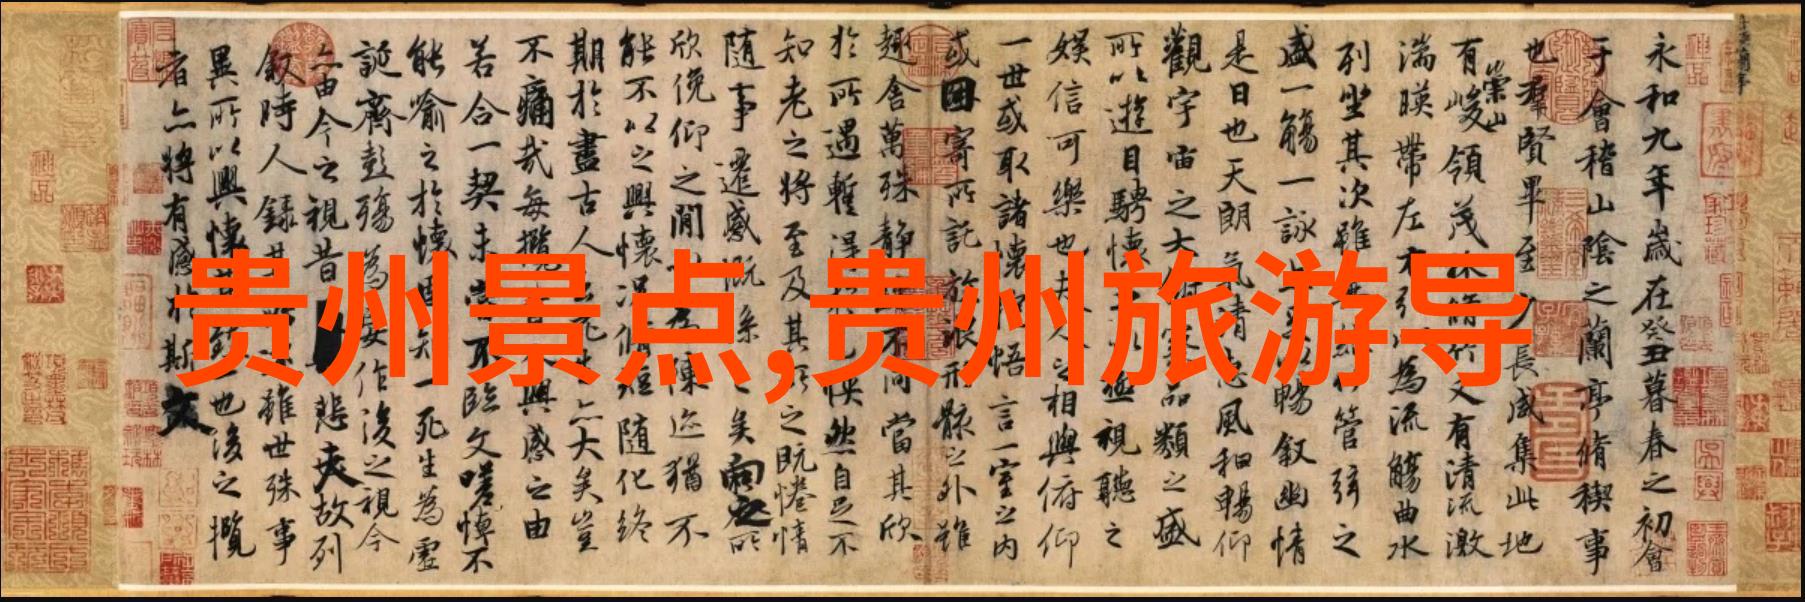 贵州景点,贵州旅游导
永和九年歲在癸丑暮春之初會
于會稽山陰之蘭亭脩稧事
也羣賢畢至少長咸集此地
有崇山峻領茂林脩竹又有清流激
湍暎帶左右引以為流觴曲水
列坐其次雖無絲竹管弦之
盛一觴一詠亦足以暢叙幽情
是日也天朗氣清惠風和暢仰
觀宇宙之大俯察品類之盛
所以遊目騁懷足以極視聽之
娛信可樂也夫人之相與俯仰
一世或取諸懷抱悟言一室之內
或因寄所託放浪形骸之外雖
趣舍萬殊静躁不同當其欣
於所遇暫得於己怏然自足不
知老之將至及其所之既惓情
隨事遷感慨係之矣向之所
欣俛仰之閒以為陳迹猶不
能不以之興懷況脩短隨化終
期於盡古人云死生亦大矣豈
不痛哉每攬昔人興感之由
若合一契未嘗不臨文嗟悼不
能喻之於懷固知一死生為虛
誕齊彭殤為妄作後之視今
亦由今之視昔悲夫故列
叙時人錄其所述雖世殊事
異所以興懷其致一也後之攬
者亦將有感於斯文